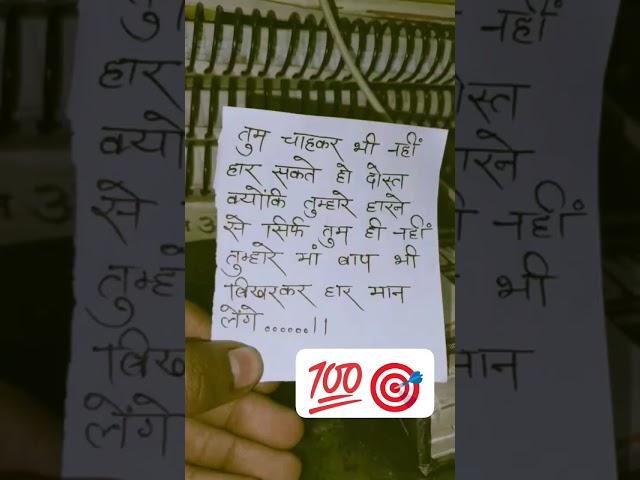 तुम चाहकर भी नहीं
हार सकते हो दोस्त
क्योंकि तुम्हारे हारने
से सिर्फ तुम ही नहीं
तुम्हारे मां बाप भी
बिखरकर हार मान
लेंगे ......।।
💯🎯